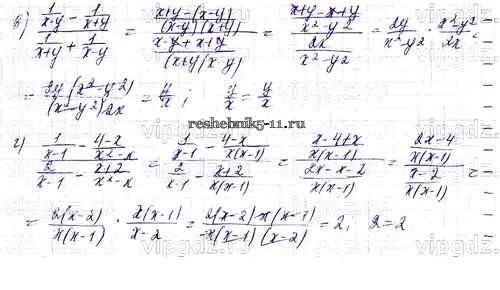 в) (1/(x-y) - 1/(x+y))/(1/(x+y) + 1/(x-y)) = ((x+y-(x-y))/((x-y)(x+y)))/((x-y+x+y)/((x+y)(x-y))) = ((x+y-x+y)/(x²-y²))/(2x/(x²-y²)) = 2y/(x²-y²) · (x²-y²)/2x =
= 2y(x²-y²)/((x²-y²)2x) = y/x ; y/x = y/x
reshebnik5-11.ru
г) (1/(x-1) - (4-x)/(x²-x))/(2/(x-1) - (x+2)/(x²-x)) = (1/(x-1) - (4-x)/(x(x-1)))/(2/(x-1) - (x+2)/(x(x-1))) = ((x-4+x)/(x(x-1)))/((2x-x-2)/(x(x-1))) = ((2x-4)/(x(x-1)))/((x-2)/(x(x-1))) =
= 2(x-2)/(x(x-1)) · x(x-1)/(x-2) = 2(x-2)x(x-1)/(x(x-1)(x-2)) = 2; 2=2